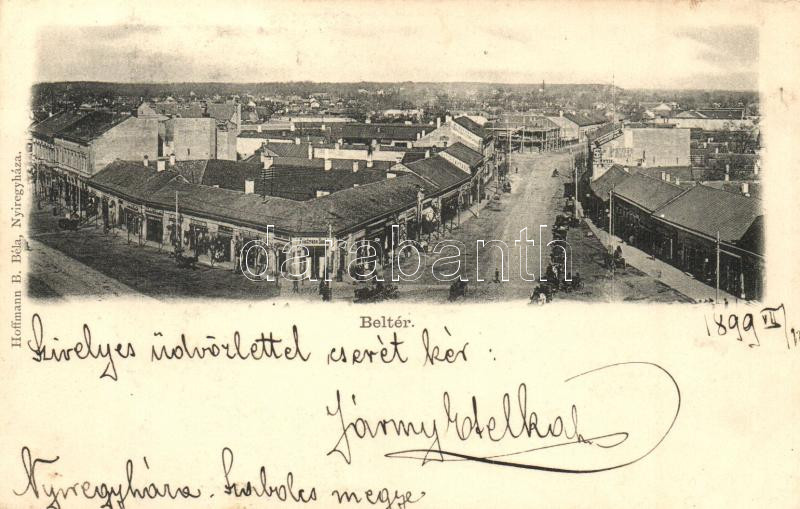 Hoffmann B. Béla, Nyiregyháza.
darabanth
Beltér.
1899 VII/
Szivelyes üdvözlettel cserét kér:
Jármy Etelka
Nyiregyháza. Szabolcs megye